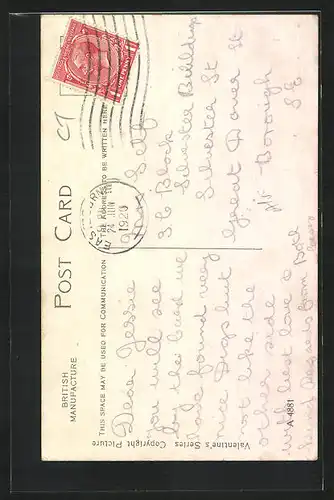 POST CARD
BRITISH
MANUFACTURE
THIS SPACE MAY BE USED FOR COMMUNICATION
THE ADDRESS TO BE WRITTEN HERE
Dear Jessie
you will see
by this Card we
have found very
nice Digs but
not like the
other side
with best love &
kind Regards from Both
Self
36 Block
Silvester Buildings
Silvester St
Great Dover St
Borough
S E
EASTBOURNE
24 JUN
1926
ONE PENNY
Valentine's Series Copyright Picture
A 4881